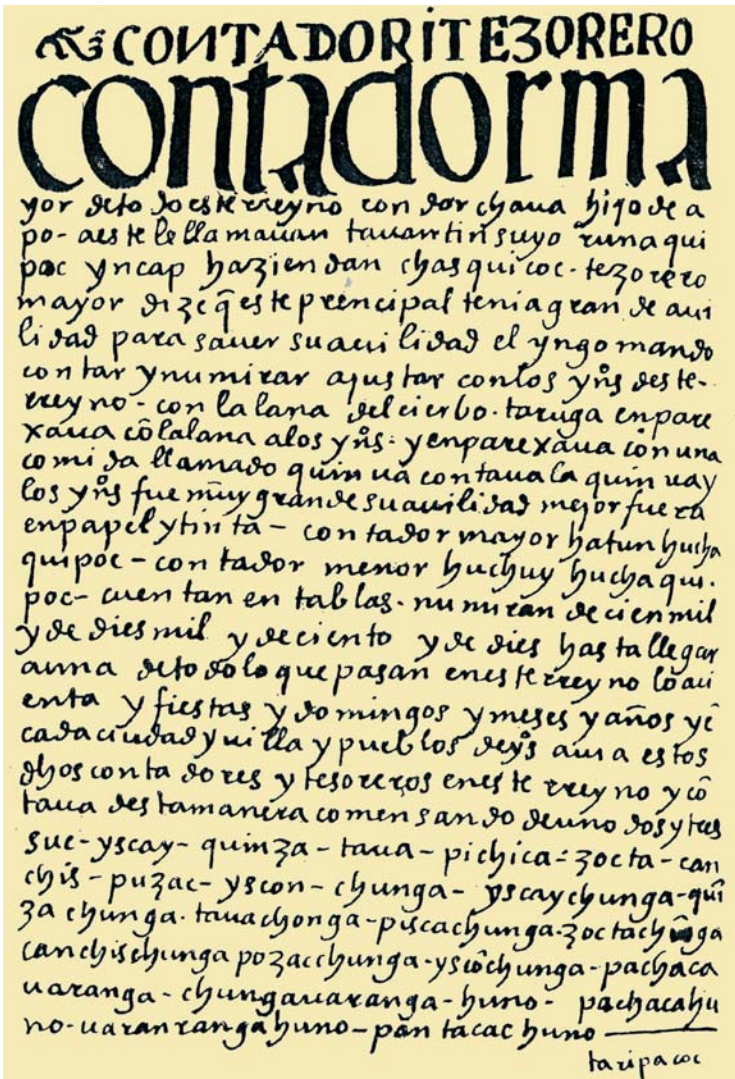 CONTADOR İ TEZORERO
contador ma
yor de todo este rreyno condorchaua hijo de a
po- a este le llamauan tauantin suyo runa qui
poc yncap haziendan chasquicoc- tezorero
mayor dize q̃ este prencipal tenia gran de aui
lidad para sauer su auilidad el ynga mando
contar y numirar ajustar con los yn̊s deste-
rreyno- con la lana del cierbo. taruga enpare
xaua cõ la lana a los yn̊s: y enparexaua con una
comida llamado quinua contaua la quinua y
los yn̊s fue muy grande su auilidad mejor fuera
en papel y tinta- contador mayor hatun hucha
quipoc- contador menor huchuy hucha qui.
poc- cuentan en tablas. numiran de cien mil
y de dies mil y de ciento y de dies hasta llegar
a una de todo lo que pasan en este rreyno lo aci
enta y fiestas y domingos y meses y años y ẽ
cada ciudad y uilla y pueblos de yn̊s auia estos
dhos contadores y tesoreros en este rreyno y cõ
taua desta manera comensando de uno dos y tres
suc- yscay- quinza- taua- pichica- zocta- can
chis- puzac- yscon- chunga- yscay chunga- quĩ
za chunga. taua chonga- pisca chunga. zocta chunga
canchis chunga pozac chunga- yscõ chunga- pachaca
uaranga- chunga uaranga- huno- pachaca hu
no- uaranranga huno- pantacac huno
taripacoc